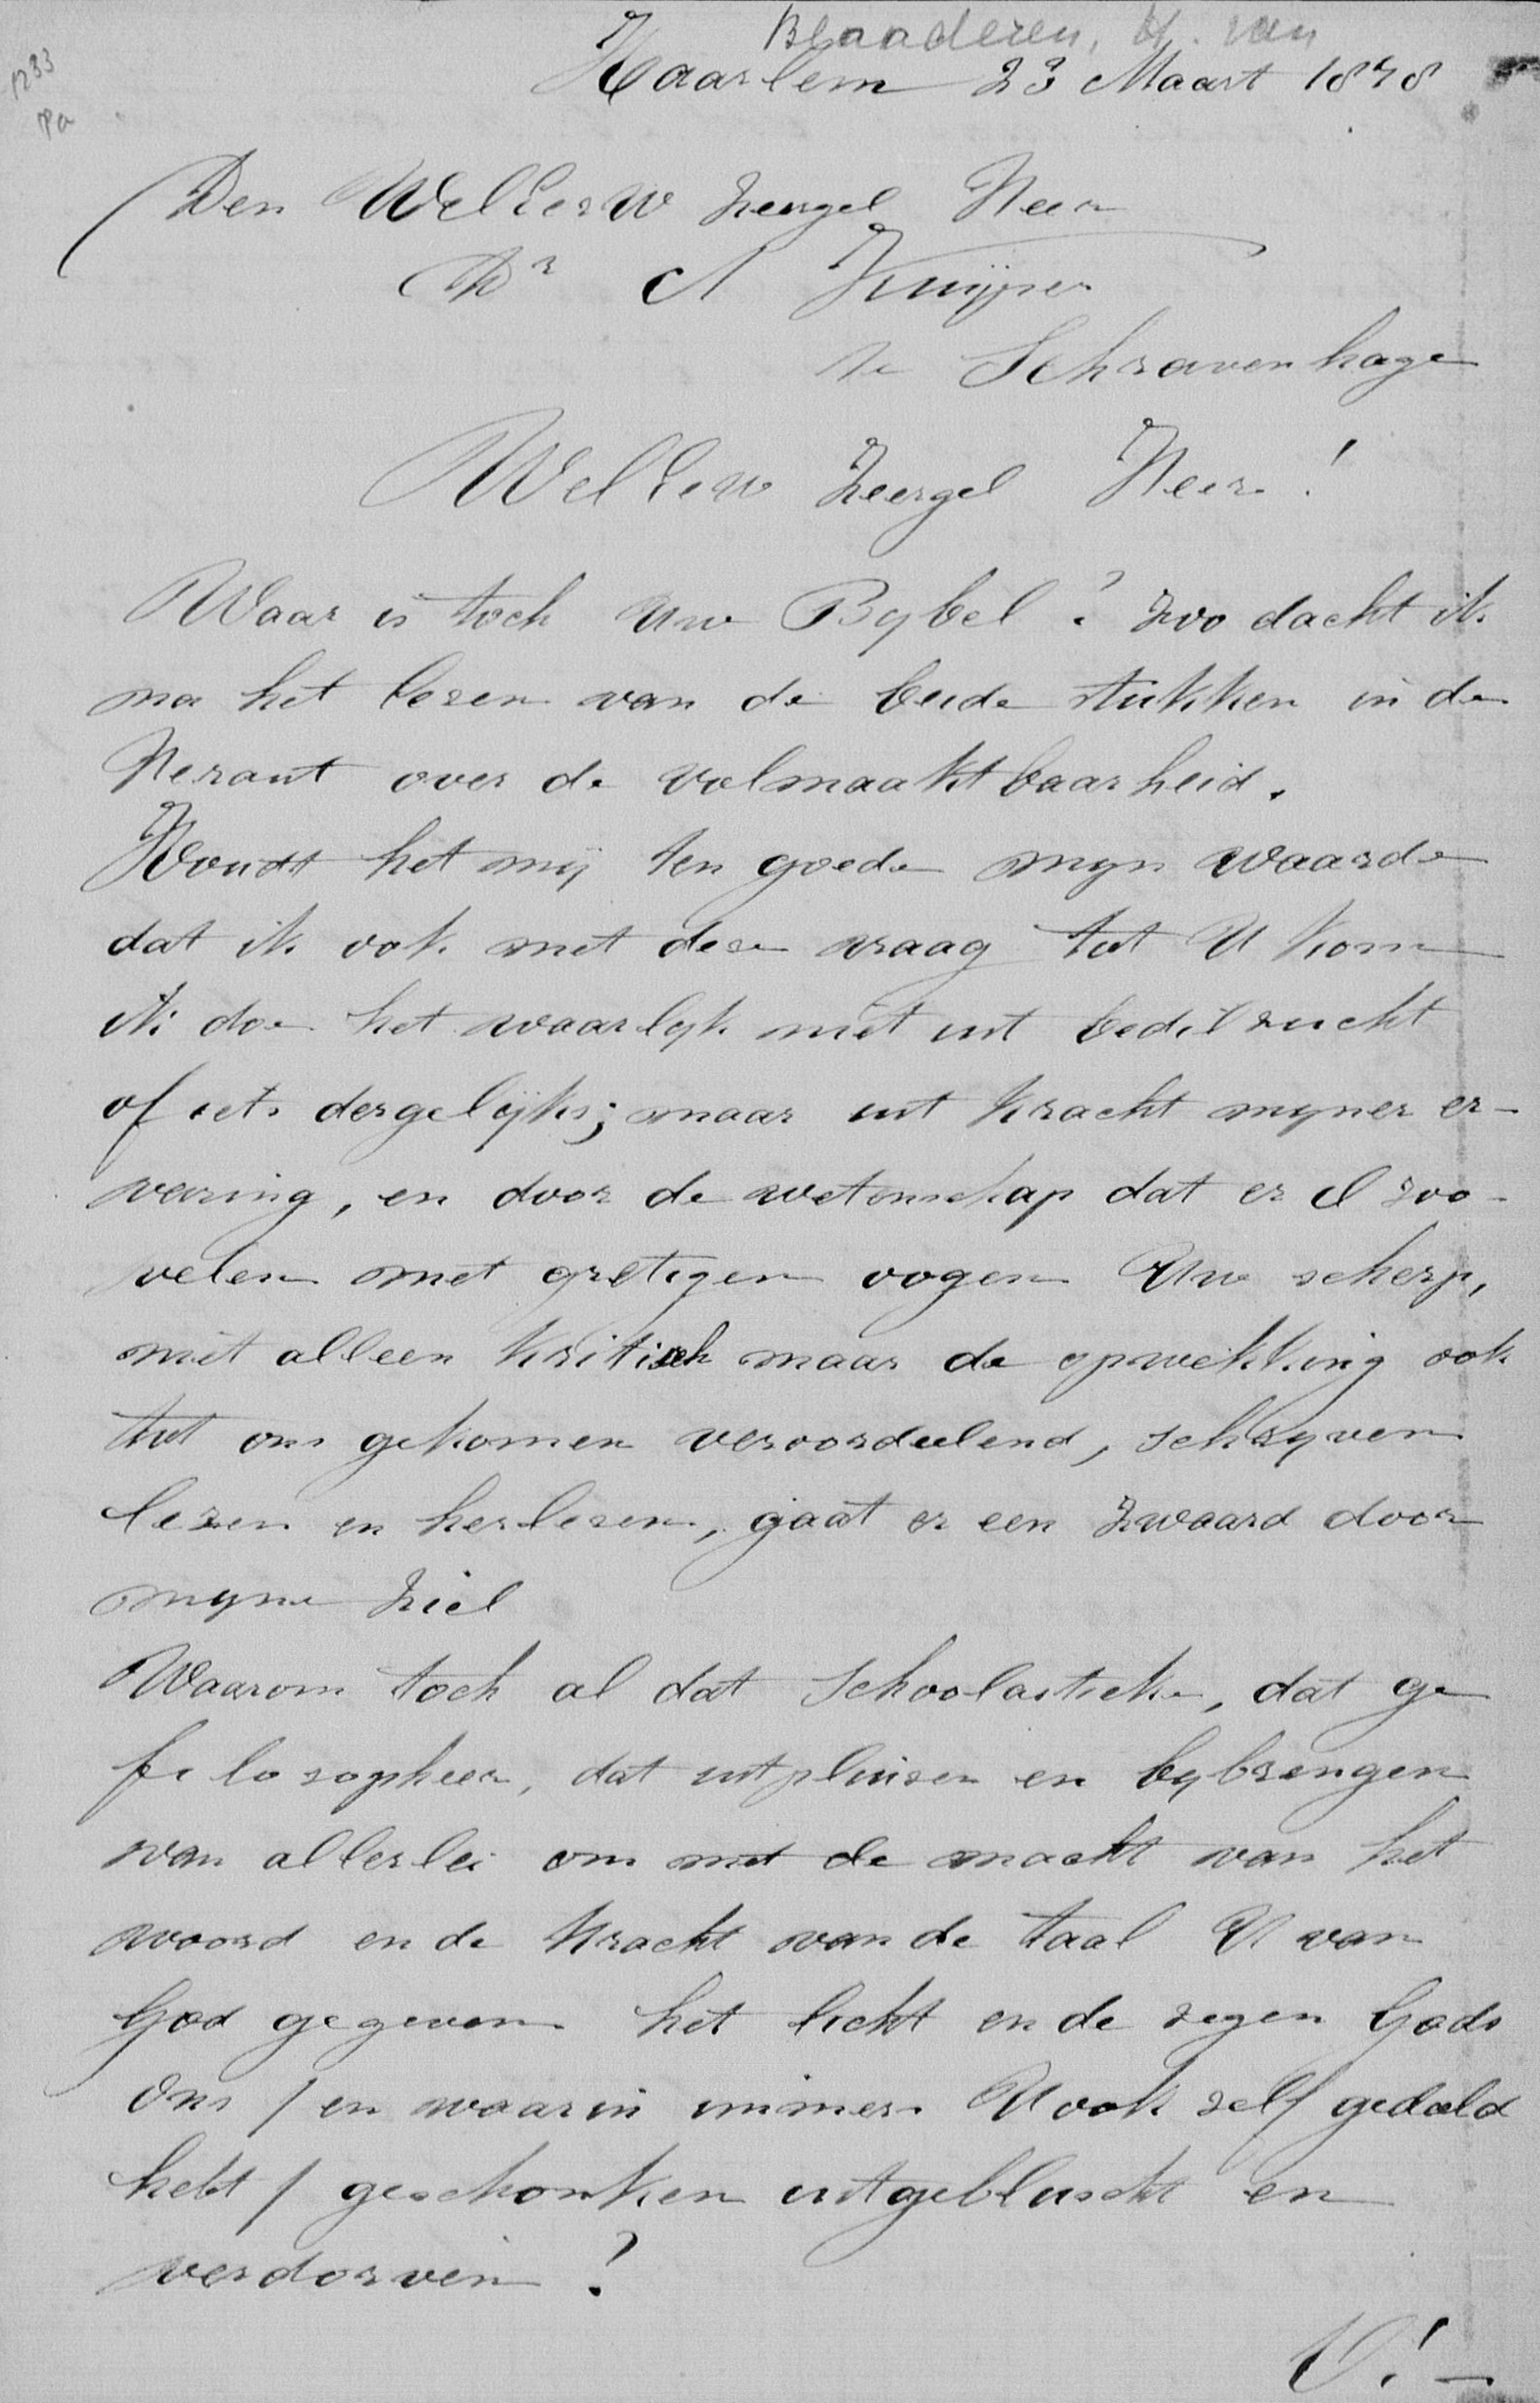 Blaaderen, H. van
1233
Pa
Haarlem 23 Maart 1878
Den WelEerw Zeergel Heer
Dr A Kuijper
te Schravenhage
WelEerw Zeergel Heer!
Waar is toch Uw Bybel? Zoo dacht ik
na het lezen van de beide stukken in de
Heraut over de volmaaktbaarheid.
Houdt het mij ten goede myn waarde
dat ik ook met deze vraag tot U kom
ik doe het waarlyk niet uit bedilzucht
of iets dergelijks; maar uit kracht myner er-
varing, en door de wetenschap dat er zoo-
velen met gretigen oogen Uw scherp,
niet alleen kritisch maar de opwekking ook
tot ons gekomen veroordeelend, schryven
lezen en herlezen, gaat er een zwaard door
myne ziel
Waarom toch al dat schoolastieke, dat ge
filosopheer, dat uitpluizen en bybrengen
van allerlei om met de macht van het
woord en de kracht van de taal U van
God gegeven het licht en de zegen Gods
ons / en waarin immers U ook zelf gedeeld
hebt / geschonken uitgebluscht en
verdorven?
O! —